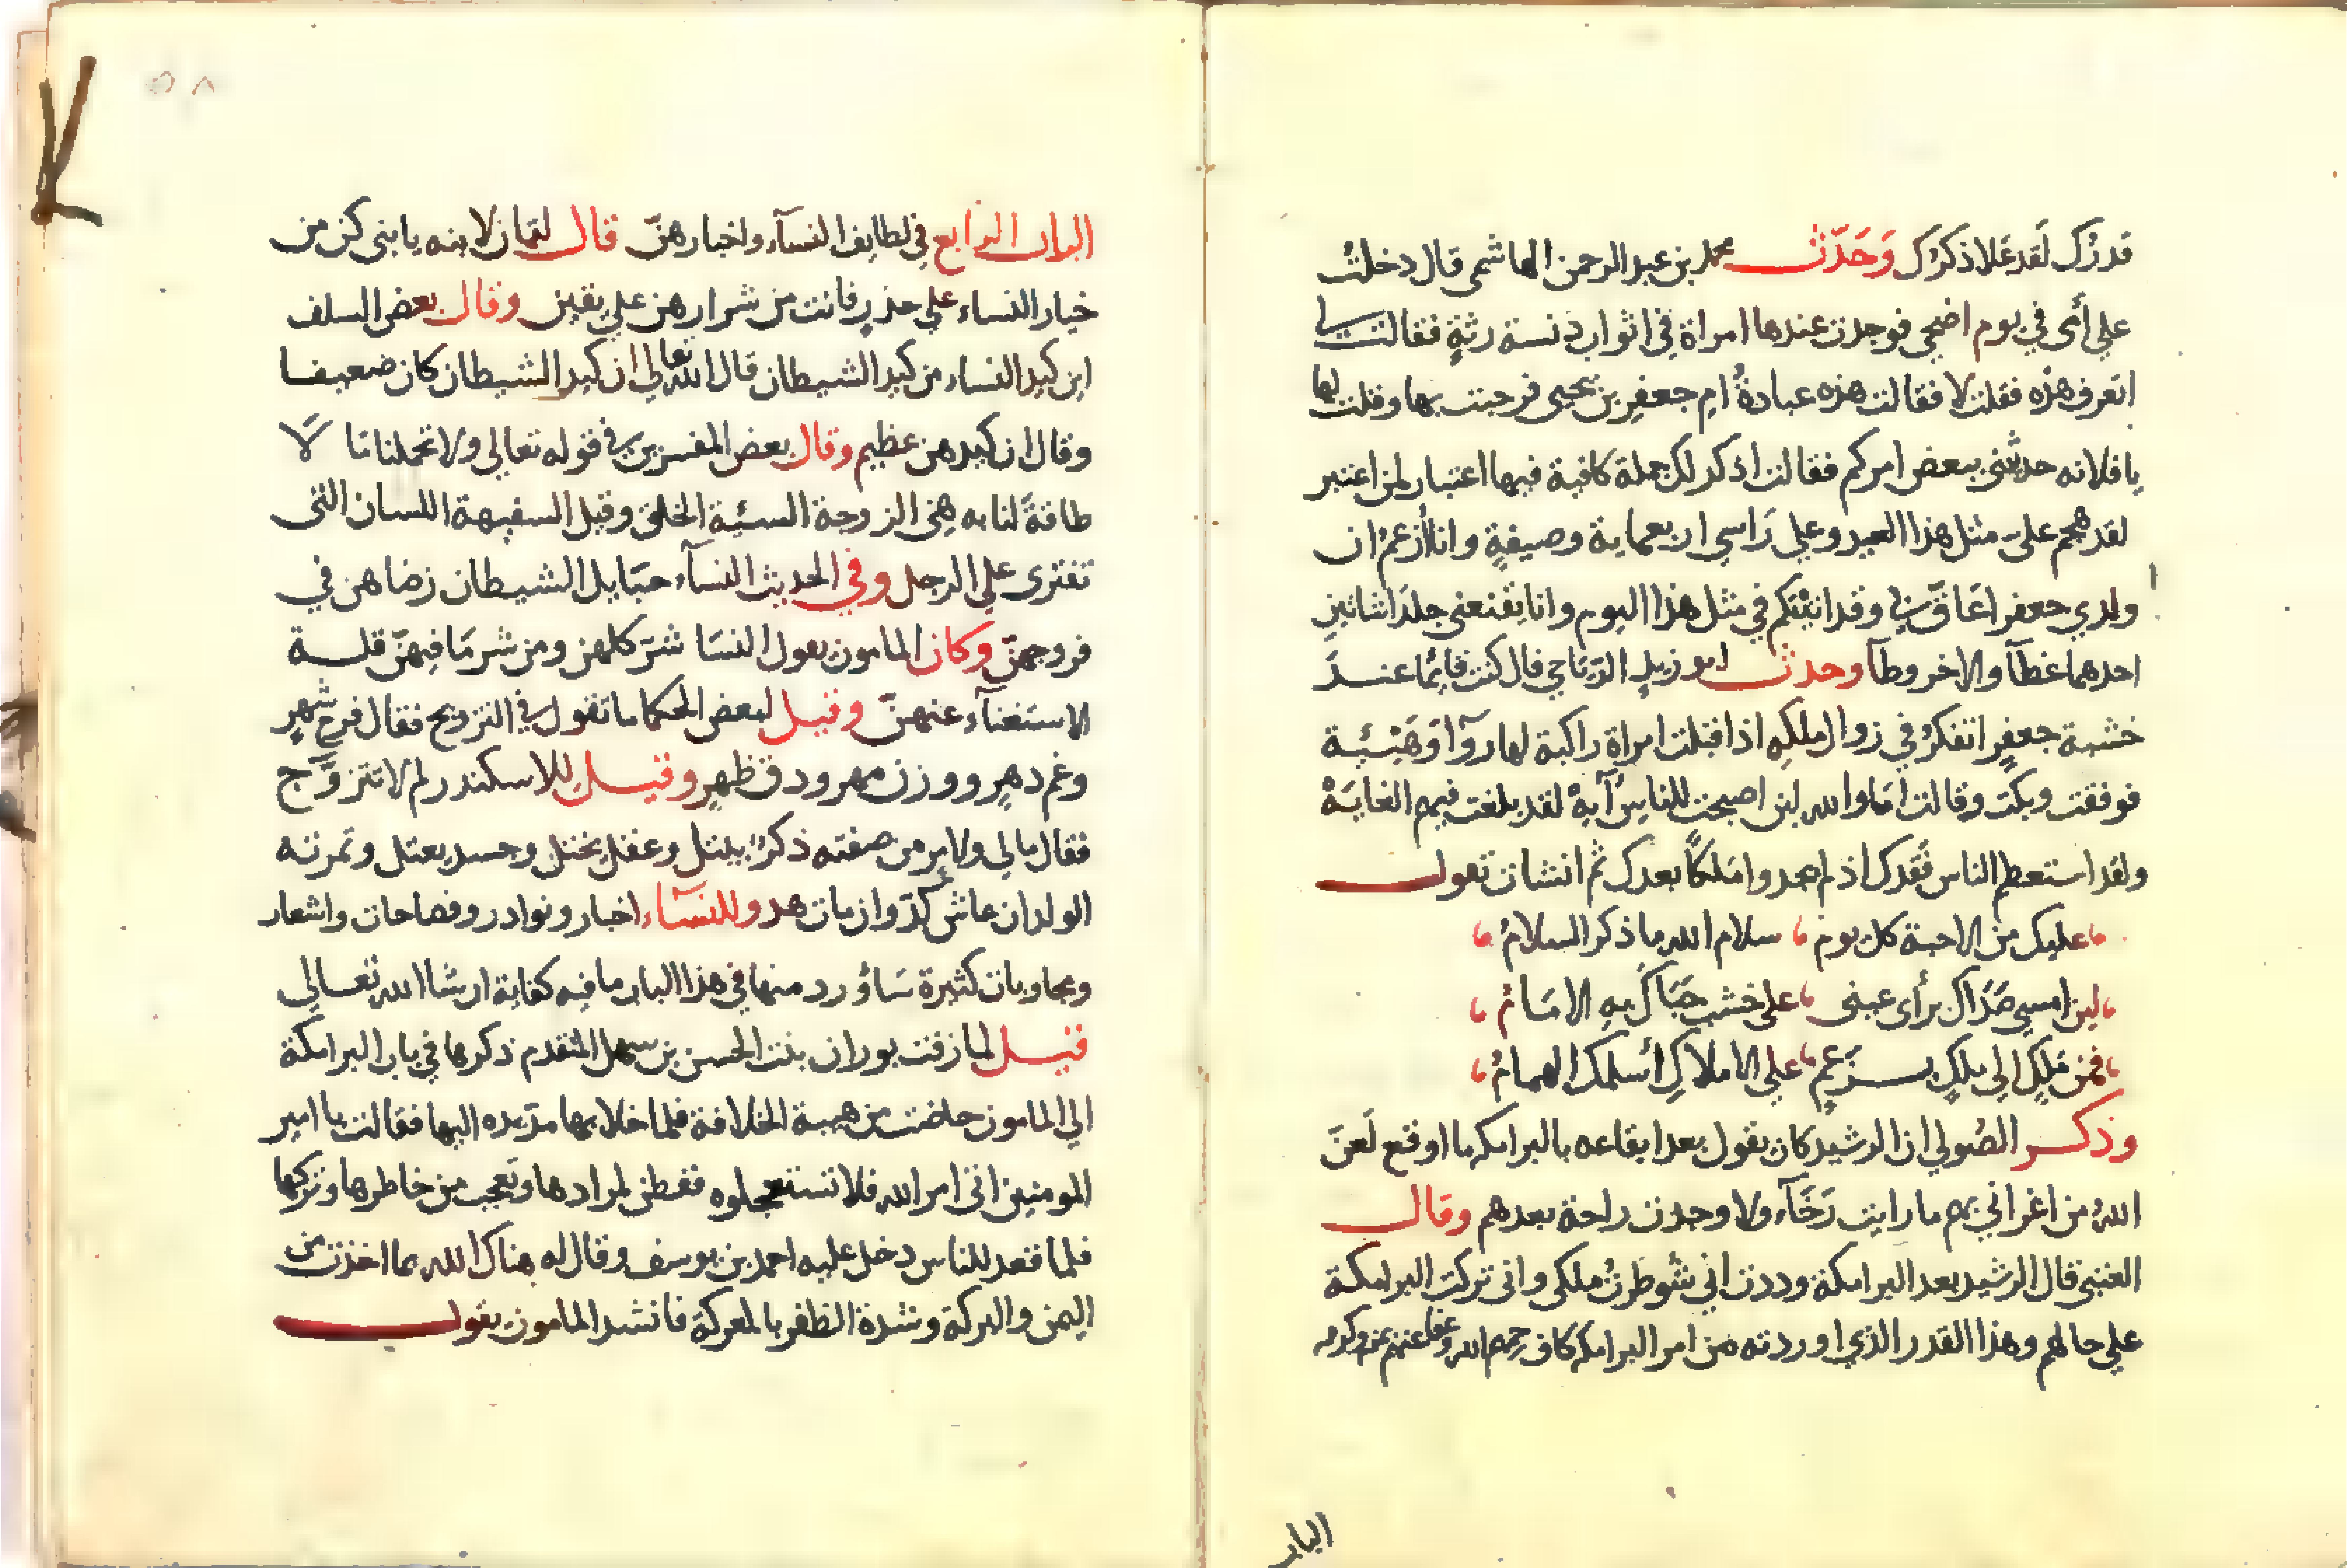 قدرك لقد غلا ذكرك وحدث محمد بن عبد الرحمن الهاشمي قال دخلت
علي أمي في يوم اضحي فوجدت عندها امراة في اثواب دنسة رثةٍ فقالت لي
اتعرف هذه فقلت لا فقالت هذه عبادةُ ام جعفر بن يحيى فرحبت بها وقلت لها
يا فلانه حدثيني ببعض امركم فقالت اذكر لك جملة كافية فيها اعتبار لمن اعتبر
لقد هجم علي مثل هذا العيد وعلي رَاسي اربعماية وصيفةٍ وانا أزعم ان
ولدي جعفر اعَاقٌّ لي وقد اتيتكم في مثل هذا اليوم وانا يقنعني جلدَا شاتينِ
احدهما غطآ والاخر وطآ وحدث ابو زيد الرياحي قال كنت قايمًا عند
خشبة جعفرٍ اتفكرُ في زوال ملكهِ اذ اقبلت امراة راكبة لها روآ وَهَيْئة
فوقفت وبكت وقالت اَمَا والله لين اصبحت للناس آيةْ لقد بلغت فيهم الغايَةْ
ولقد استعظم الناس فَقَدك اذ لم يجدوا مَلكًا بعدك ثم انشات تقول
عليك من الاحبة كل يوم سلام الله ما ذكر السلامُ
لين امسي صَدَاك برأى عيني على خشب حَبَاكَ بهِ الامَامُ
فمن مَلِكٍ الى ملكٍ برَغمٍ علي الاملاكِ أسلمكَ الهمامُ
وذكر الصُولي ان الرشيد كان يقول بعد ايقاعه بالبرامكه ما اوقع لَعَنَ
اللهُ من اغراني بهم ما رايت رَخَآء ولا وجدت راحة بعدهم وقال
العتبي قال الرشيد بعد البرامكة وددت اني شُوطرتُ ملكي واني تركت البرامكة
علي حالهم وهذا القدر الذي اوردته من امر البرامكه كاف رحمهم الله وعفا عنهم بمنه وكرمه
الباب
٥٨
الباب الرابع في لطايف النسآء واخبارهنّ قال لقمان لابنه يا بني كن من
خيار النساء علي حذرٍ فانت من شرارهن علي يقين وقال بعض السلف
اين كيد النساء من كيد الشيطان قال الله تعالي ان كيد الشيطان كان ضعيفا
وقال ان كيدهن عظيم وقال بعض المفسرين في قوله تعالي ولا تحملنا مَا لَا
طاقةَ لنا به هي الزوجة السئية الخلق وقيل السفيهة اللسان التى
تفترى علي الرجل وفي الحديث النسآء حبَايل الشيطان رضاهن في
فروجهنّ وكان المامون يقول النسَا شرّ كلهن ومن شر مَا فيهنّ قلة
الاستغنآء عنهنّ وقيل لبعض الحكما ما تقول في التزويج فقال فرح شهرٍ
وغم دهرٍ ووزن مهر ودق ظهرٍ وقيل للاسكندر لم لا تتزوَّج
فقال مالي ولامرٍ من صفته ذكرٌ يبتل وعقل يختل وحسد يعتل وثمرته
الولد ان عاش كدّ وان مات هد وللنسآء اخبار ونوادر وفصاحات واشعار
ومجاوبات كثيرة سَاؤرد منها في هذا الباب ما فيه كفاية ان شا الله تعالي
قيل لما زفت بوران بنت الحسن بن سهل المتقدم ذكرها في باب البرامكة
الي المامون حاضت من هيبة الخلافة فلما خلا بها مدّ يده اليها فقالت يا امير
المومنين اتى امر الله فلا تستعجلوه ففطن لمرادها وتعجب من خاطرها وتركها
فلما قعد للناس دخل عليه احمد بن يوسف وقال له هناك الله بما اخذت من
اليمن والبركة وشدة الظفر بالمعركة فانشد المامون يقول